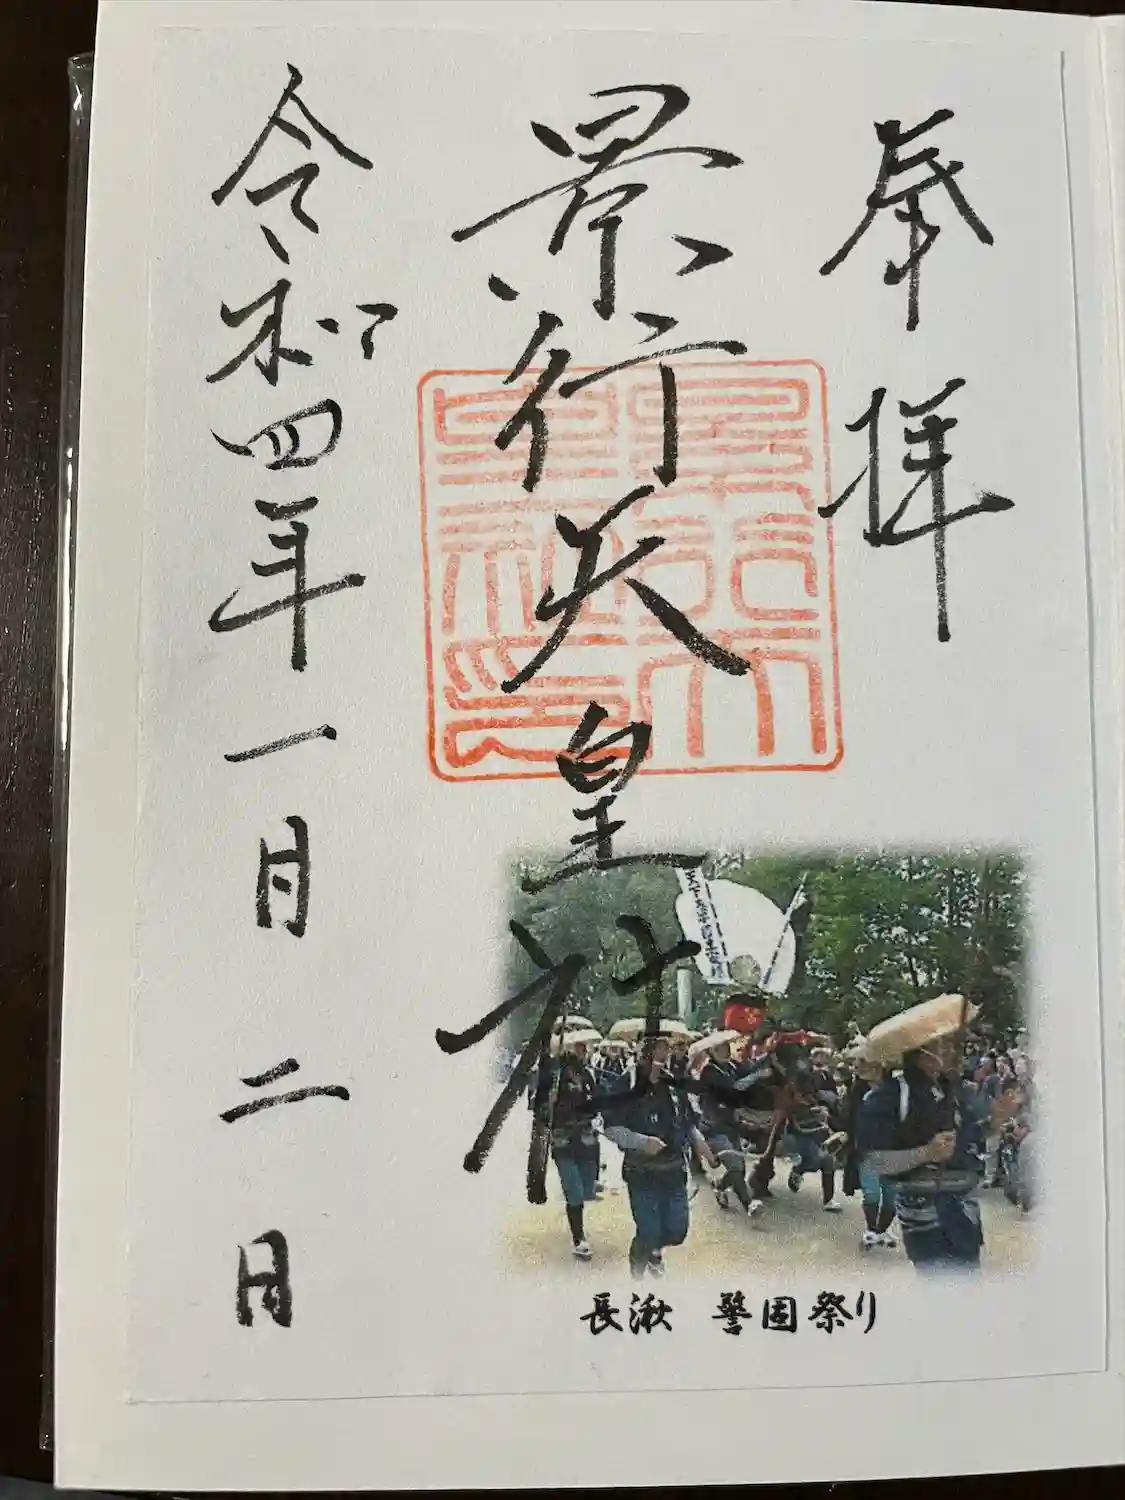 奉拝
景行天皇社
令和四年一月二日
長湫 警固祭り